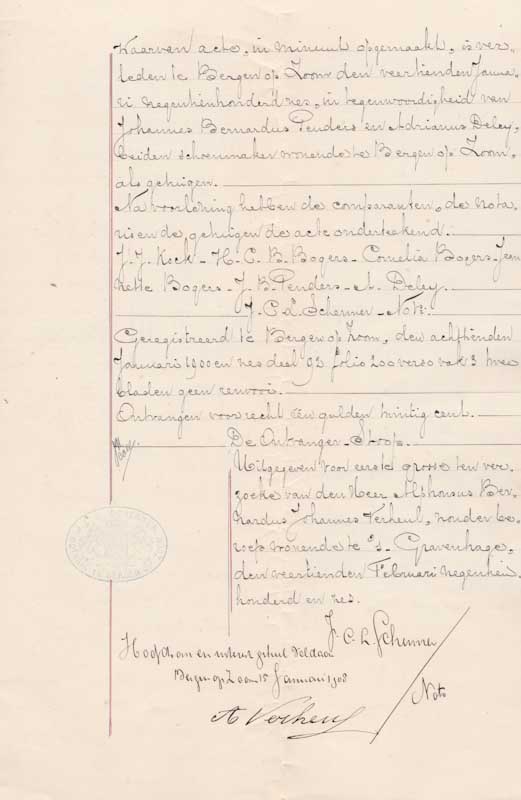 Waarvan acte, in minuut opgemaakt, is ver-
leden te Bergen op Zoom den veertienden Janua-
ri negentienhonderd zes, in tegenwoordigheid van
Johannes Bernardus Penders en Adrianus Deley,
beiden schoenmaker wonende te Bergen op Zoom,
als getuigen.
Na voorlezing hebben de comparanten, de nota-
ris en de getuigen de acte onderteekend.
J. J. Kock - H. C. B. Bogers - Cornelia Bogers - Jean
nette Bogers - J. B. Penders - A. Deley
J. C. L. Schenner - Nots.
Geregistreerd te Bergen op Zoom, den achttienden
Januari 1900 en zes deel 92 folio 200 verso vak 3 twee
bladen geen renvooi.
Ontvangen voor recht een gulden twintig cent.
De Ontvanger - Stoop.
Uitgegeven voor eerste grosse ten ver
zoeke van den Heer Alphonsus Ber
nardus Johannes Verheul, zonder be
roep wonende te 's Gravenhage,
den veertienden Februari negentien
honderd en zes.
J. C. L. Schenner
Nots
Hoofdsom en interest geheel voldaan
Bergen op Zoom 15 Januari 1908
A Verheul